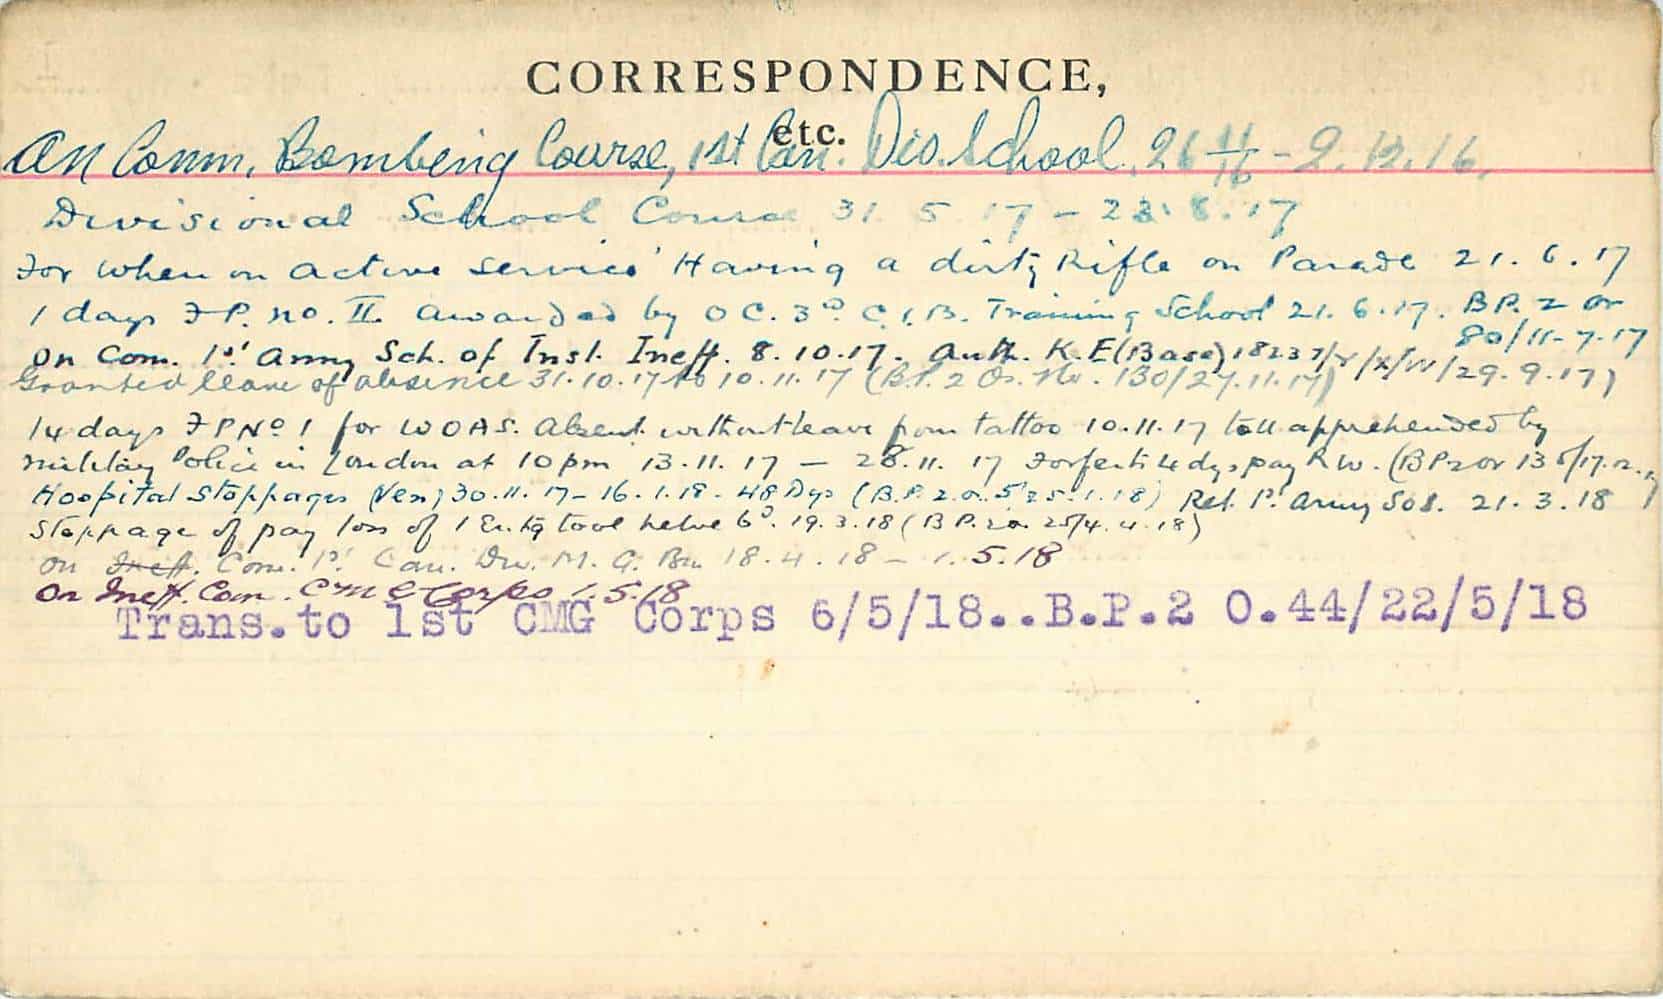 CORRESPONDENCE,
etc.
On Comm, Bombing Course, 1st Can. Dis. School. 26 11/16 - 2.12.16.
Divisional School Course 31 5 17 - 23.8.17
For when on active service Having a dirty Rifle on Parade 21.6.17
1 days F.P. No. II. awarded by O C. 3rd C.I.B. Training School 21.6.17. B.P. 2 or
80/11-7-17
On Com. 1st Army Sch. of Inst. Ineff. 8.10.17. Auth. K.E(Base)18237/ /X/W/29.9.17)
Granted leave of absence 31.10.17 to 10.11.17 (B.P.2 Or. No. 130/27.11.17)
14 days F P No 1 for WOAS. Absent without leave from tattoo 10.11.17 till apprehended by
Military Police in London at 10 pm 13.11.17 - 28.11.17 Forfeits 4 dys pay R.W. (B P 2 or 135/17.12.17
Hospital Stoppages (Ven) 30.11.17-16.1.18-48 Dys (B.P.2.O. 5/25.1.18) Ret. 1st Army Sos. 21.3.18
Stoppage of pay loss of 1 Entg tool helve 6d. 19.3.18 (B P.2 o 25/4.4.18)
On Ineff. Com. 1st Can. Div. M. G. Bn 18.4.18 - 1.5.18
On Ineff. Com. C M G Corps 1.5.18
Trans.to 1st CMG Corps 6/5/18..B.P.2 O.44/22/5/18